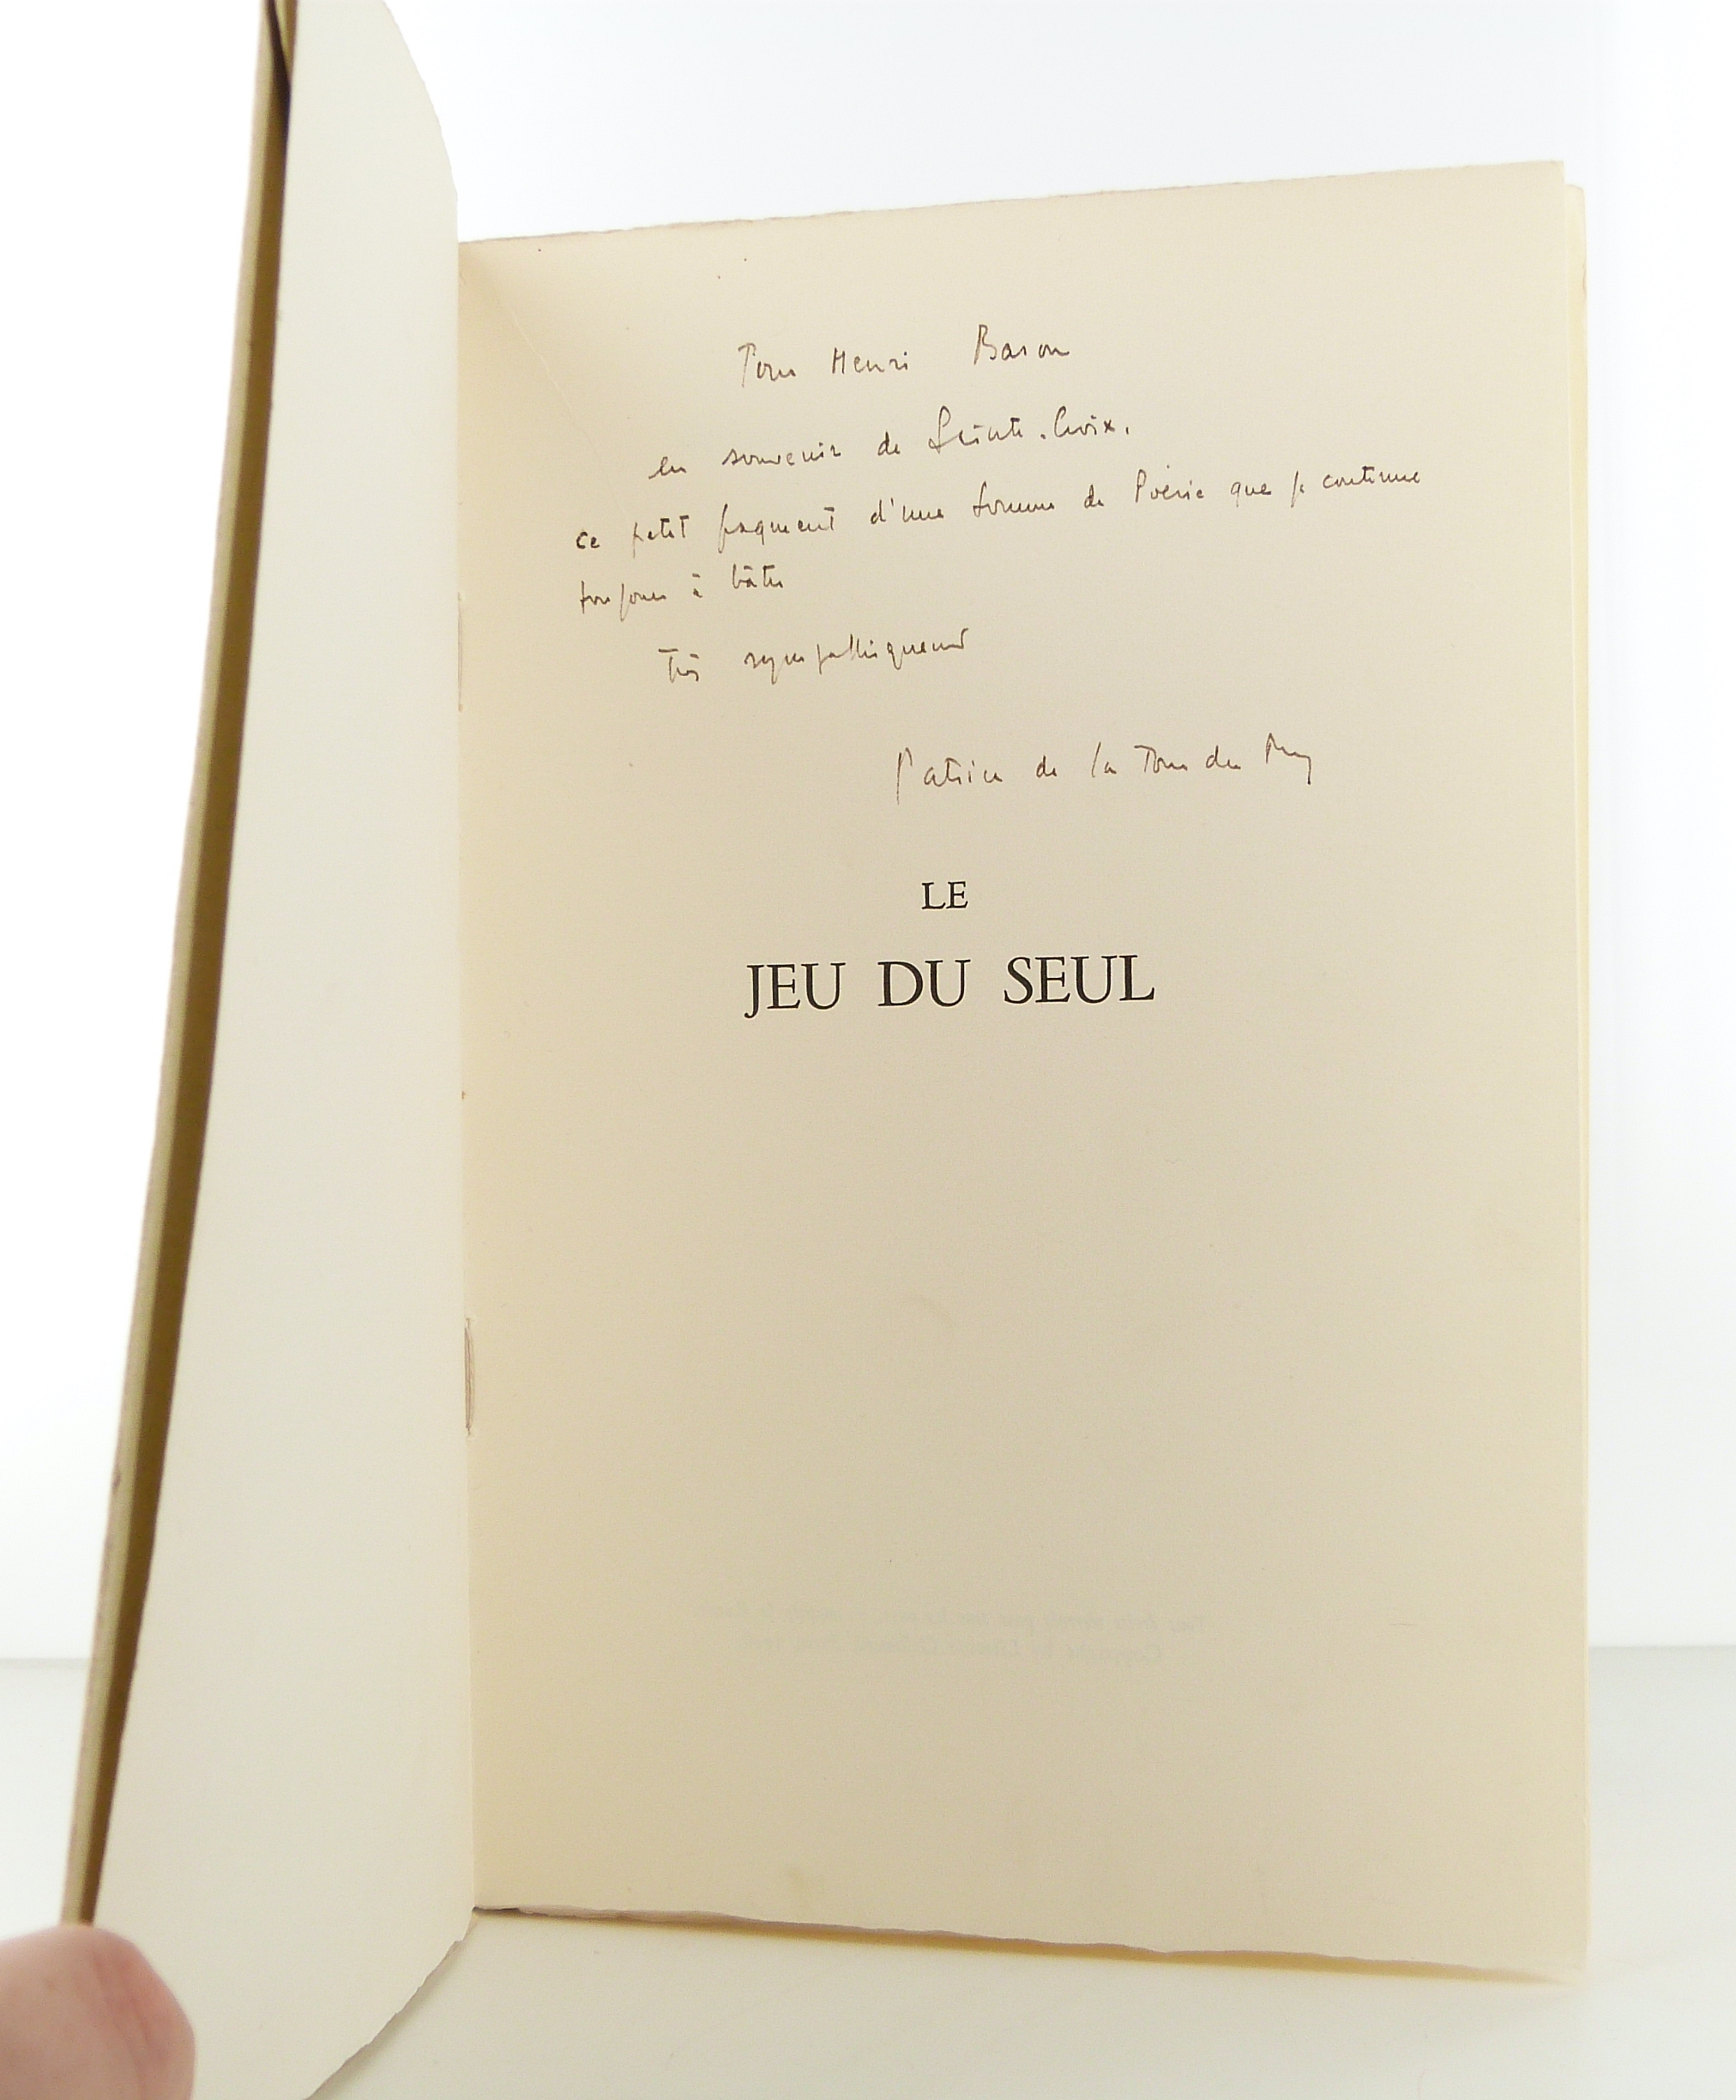 Pour Henri Baron
en souvenir de Sainte-Croix.
ce petit fragment d'une Somme de Poésie que je continue
toujours à bâtir
Très sympathiquement
Patrice de la Tour du Pin
LE
JEU DU SEUL